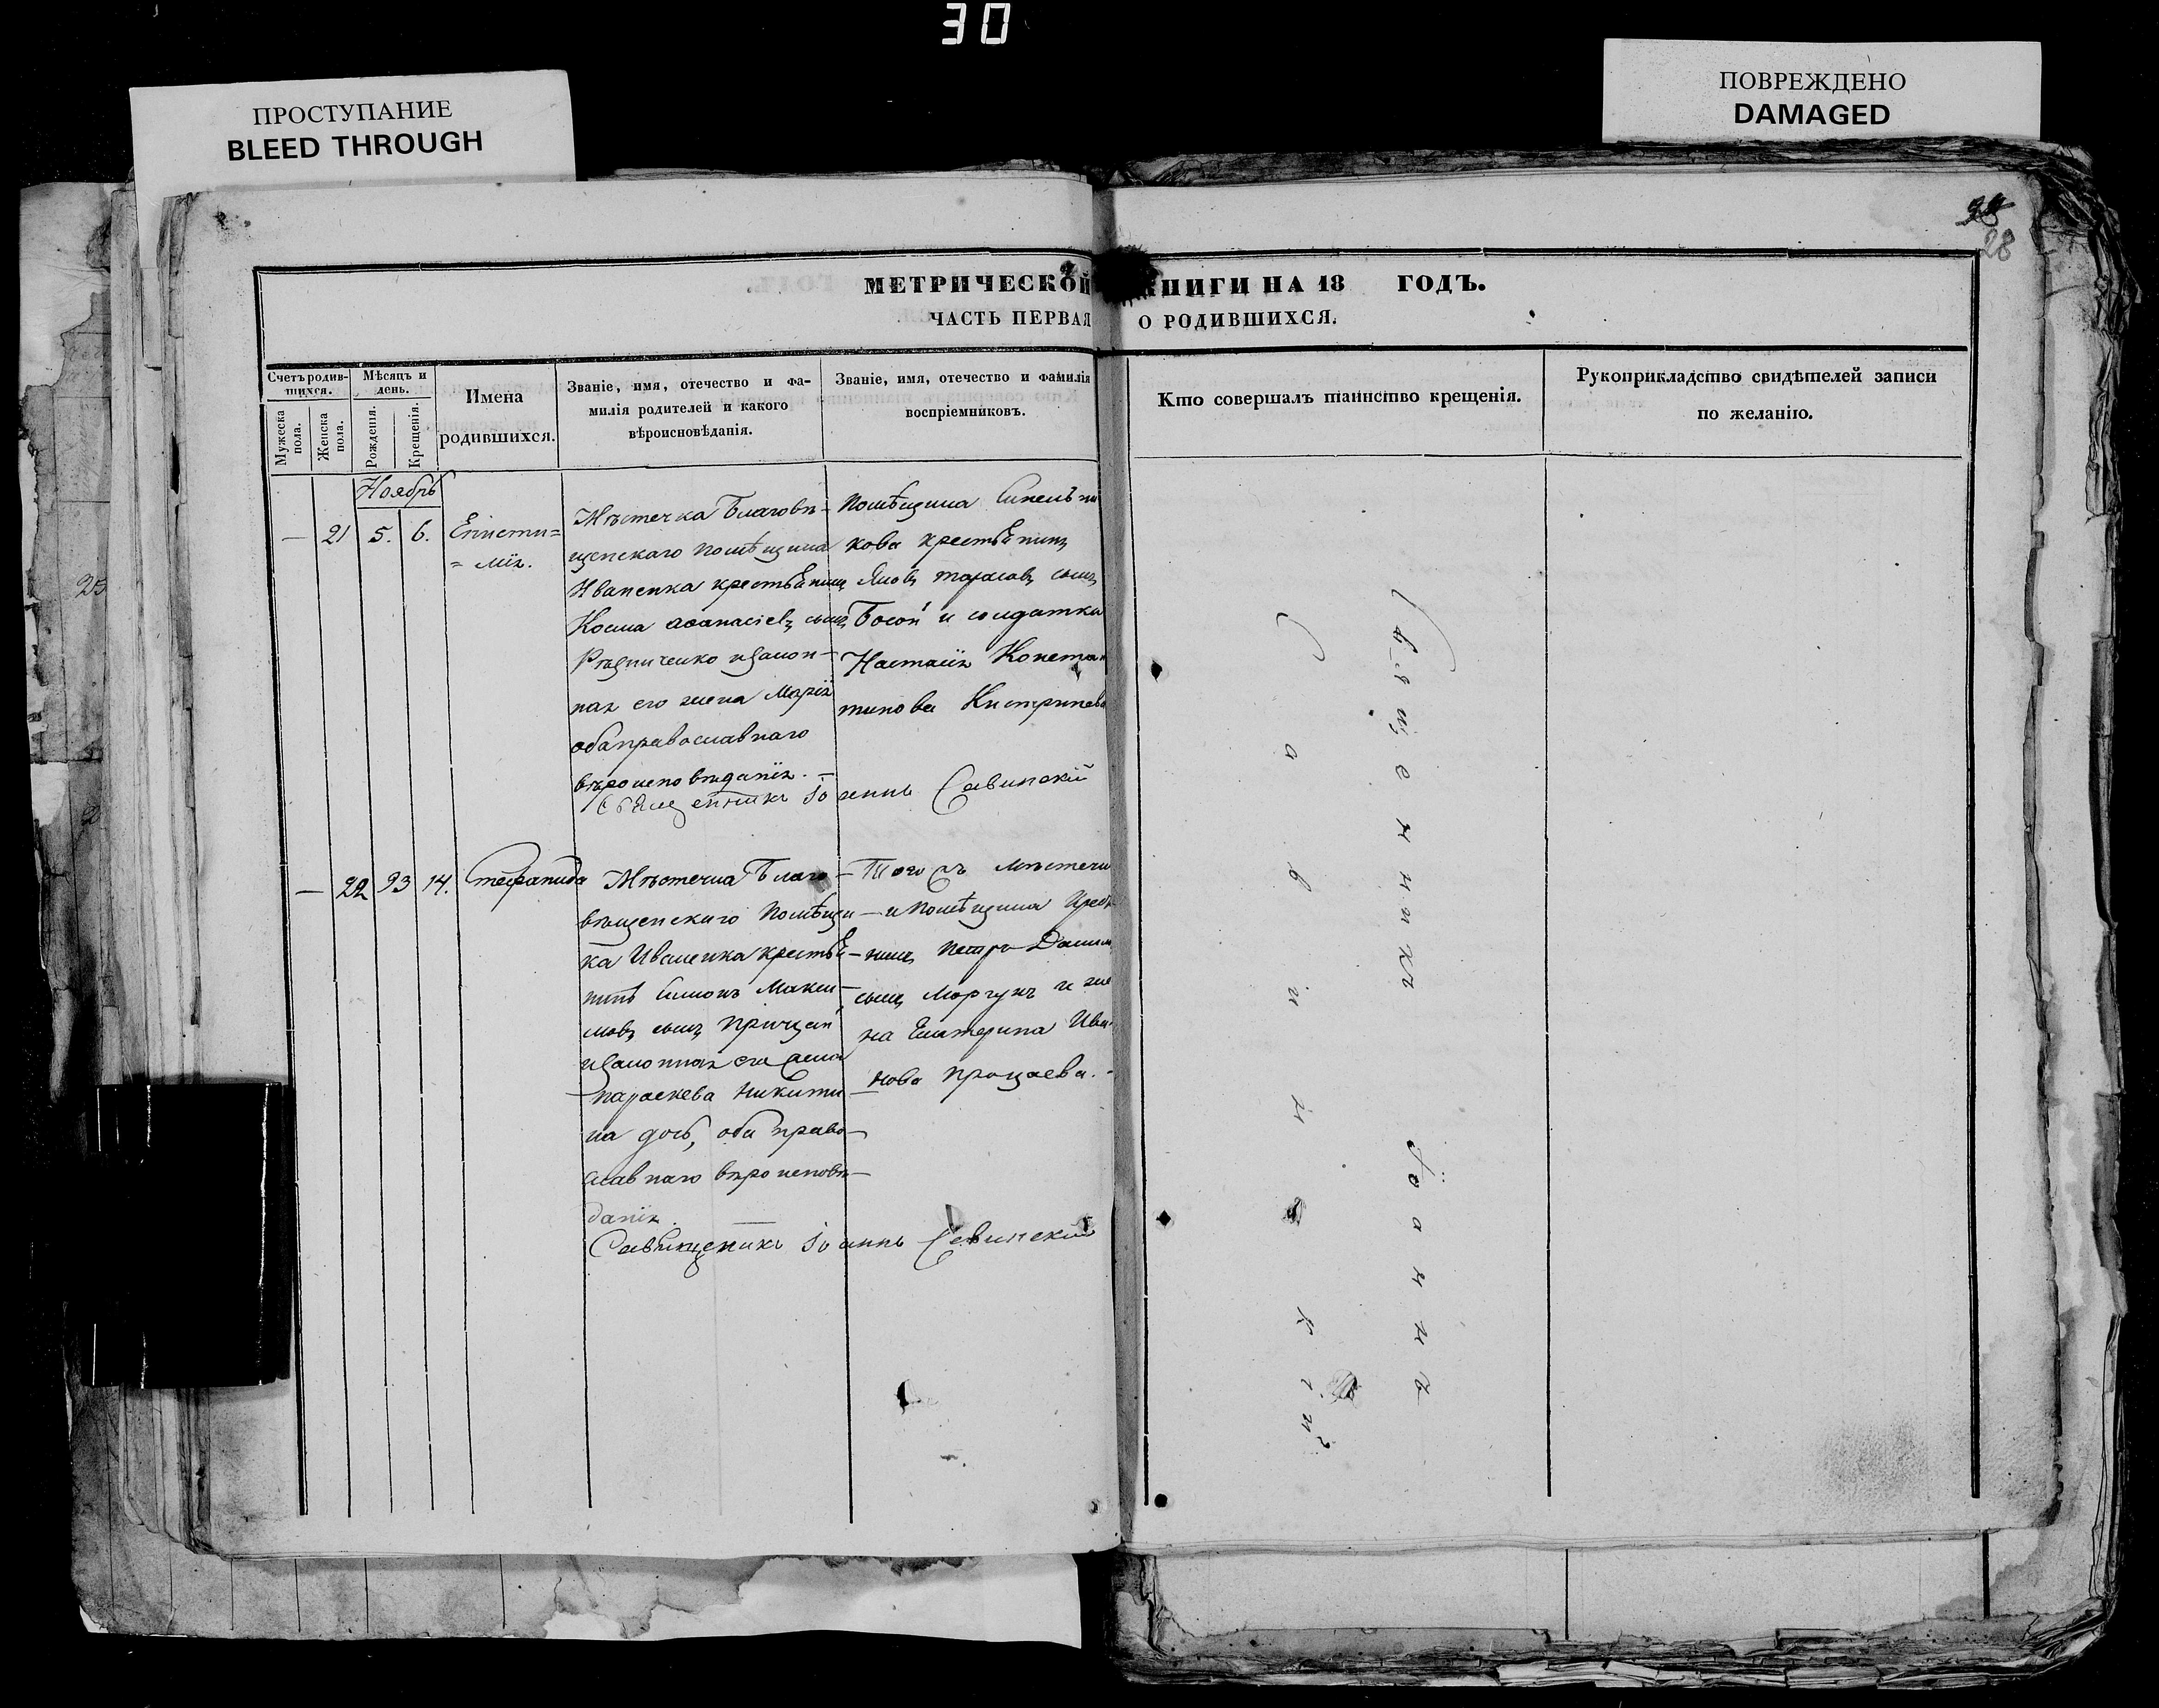 30
ПРОСТУПАНИЕ
BLEED THROUGH
ПОВРЕЖДЕНО
DAMAGED
28
МЕТРИЧЕСКОЙ КНИГИ НА 18 ГОДЪ.
ЧАСТЬ ПЕРВАЯ О РОДИВШИХСЯ.
Счетъ родив-
шихся.
Мужеска
пола.
Женска
пола.
Мѣсяцъ и
день.
Рожденія.
Крещенія.
Имена
родившихся.
Званіе, имя, отечество и фа-
милія родителей и какого
вѣроисновѣданія.
Званіе, имя, отечество и фамилія
воспріемниковъ.
Кто совершалъ таинство крещенія.
Рукоприкладство свидѣтелей записи
по желанію.
Ноябрь
— 21 5. 6. Еписти=
=мія.
Мѣстечка Благовѣ-
щенскаго помѣщика
Иваненка крестьянинъ
Косма Аѳанасіевъ сынъ
и закон-
ная его жена Марія
оба православнаго
вѣроисповѣданія. —
Помѣщика Синельни
кова крестьянинъ
Яковъ Тарасовъ сынъ
Босой и солдатка
Настасія Констан
тинова
Священникъ Іоаннъ Савинскій
— 22 93 14. Стефанида
Мѣстечка Благо-
вѣщенскаго Помѣщи-
ка Иваненка крестья-
нинъ Симонъ Макси-
мовъ сынъ Прицай
изаконная его жена
Параскева Никити-
на дочь, оба право-
славнаго вѣроисповѣ-
данія.
Того съ мѣстечк
и помѣщика крестя
нинъ Петръ Данил
сынъ Моргунъ и же
на Екатерина Ива-
нова Процаева. -
Савященикъ Іоаннъ Савинскій
Священникъ Іоаннъ
Савинскій